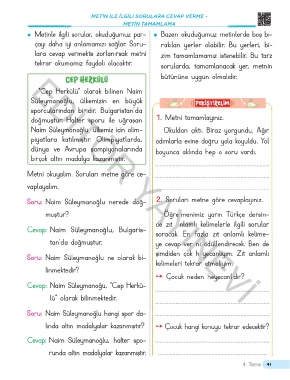 METİN İLE İLGİLİ SORULARA CEVAP VERME -
METİN TAMAMLAMA
• Metinle ilgili sorular, okuduğumuz par-
çayı daha iyi anlamamızı sağlar. Soru-
lara cevap vermekte zorlanırsak metni
tekrar okumamız faydalı olacaktır.
CEP HERKÜLÜ
"Cep Herkülü" olarak bilinen Naim
Süleymanoğlu, ülkemizin en büyük
sporcularından biridir. Bulgaristan'da
doğmuştur. Halter sporu ile uğraşan
Naim Süleymanoğlu, ülkemiz için olim-
piyatlara katılmıştır. Olimpiyatlarda,
dünya ve Avrupa şampiyonalarında
birçok altın madalya kazanmıştır.
Metni okuyalım. Soruları metne göre ce-
vaplayalım.
Soru: Naim Süleymanoğlu nerede doğ-
muştur?
Cevap: Naim Süleymanoğlu, Bulgaris-
tan'da doğmuştur.
Soru: Naim Süleymanoğlu ne olarak bi-
linmektedir?
Cevap: Naim Süleymanoğlu, "Cep Herkü-
lü" olarak bilinmektedir.
Soru: Naim Süleymanoğlu hangi spor da-
lında altın madalyalar kazanmıştır?
Cevap: Naim Süleymanoğlu, halter spo-
runda altın madalyalar kazanmıştır.
• Bazen okuduğumuz metinlerde boş bı-
rakılan yerler olabilir. Bu yerleri, bi-
zim tamamlamamız istenebilir. Bu tarz
sorularda, tamamlanacak yer, metnin
bütününe uygun olmalıdır.
PEKİŞTİRELİM
1. Metni tamamlayınız.
Okuldan çıktı. Biraz yorgundu. Ağır
adımlarla evine doğru yola koyuldu. Yol
boyunca aklında hep o soru vardı.
2. Soruları metne göre cevaplayınız.
Öğretmenimiz yarın Türkçe dersin-
de zıt anlamlı kelimelerle ilgili sorular
soracak. En fazla zıt anlamlı kelime-
ye cevap vereni ödüllendirecek. Ben de
şimdiden çok heyecanlıyım. Zıt anlamlı
kelimeleri tekrar etmeliyim.
➞ Çocuk neden heyecanlıdır?
➞ Çocuk hangi konuyu tekrar edecektir?
4. Tema 41